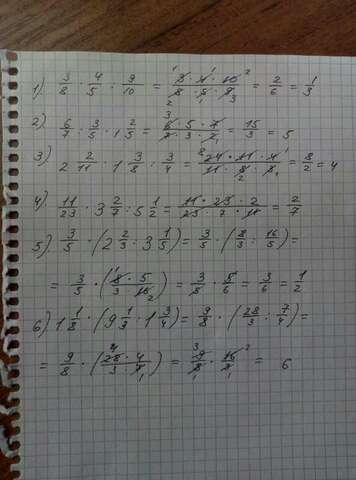 1) 3/8 · 4/5 : 9/10 = (3 · 4 · 10)/(8 · 5 · 9) = 2/6 = 1/3
2) 6/7 : 3/5 · 1 2/5 = (6 · 5 · 7)/(7 · 3 · 5) = 15/3 = 5
3) 2 2/11 : 1 3/8 : 3/4 = (24 · 11 · 4)/(11 · 8 · 3) = 8/2 = 4
4) 11/23 · 3 2/7 : 5 1/2 = (11 · 23 · 2)/(23 · 7 · 11) = 2/7
5) 3/5 · (2 2/3 : 3 1/5) = 3/5 · (8/3 : 16/5) =
= 3/5 · (8 · 5)/(3 · 16) = 3/5 · 5/6 = 3/6 = 1/2
6) 1 1/8 · (9 1/3 : 1 3/4) = 9/8 · (28/3 : 7/4) =
= 9/8 · (28 · 4)/(3 · 7) = 9/8 · 16/3 = 6